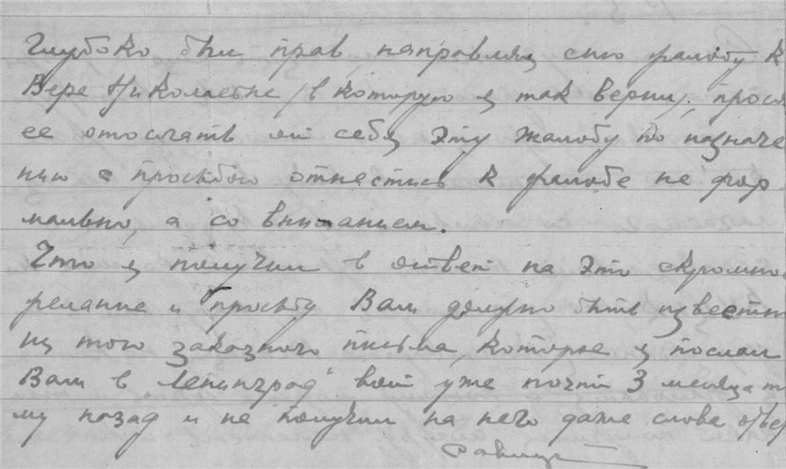 Глубоко был прав, направляя свою жалобу к
Вере Николаевне (в которую я так верил), прося
ее отослать от себя эту жалобу по назначе
нию с просьбою отнестись к жалобе не фор
мально, а со вниманием.
Что я получил в ответ на это скромно
желание и просьбу Вам должно быть известн
из того заказного письма, которые я послал
Вам в "Ленинград" вот уже почти 3 месяца т
му назад и не получил на него даже слова ответ